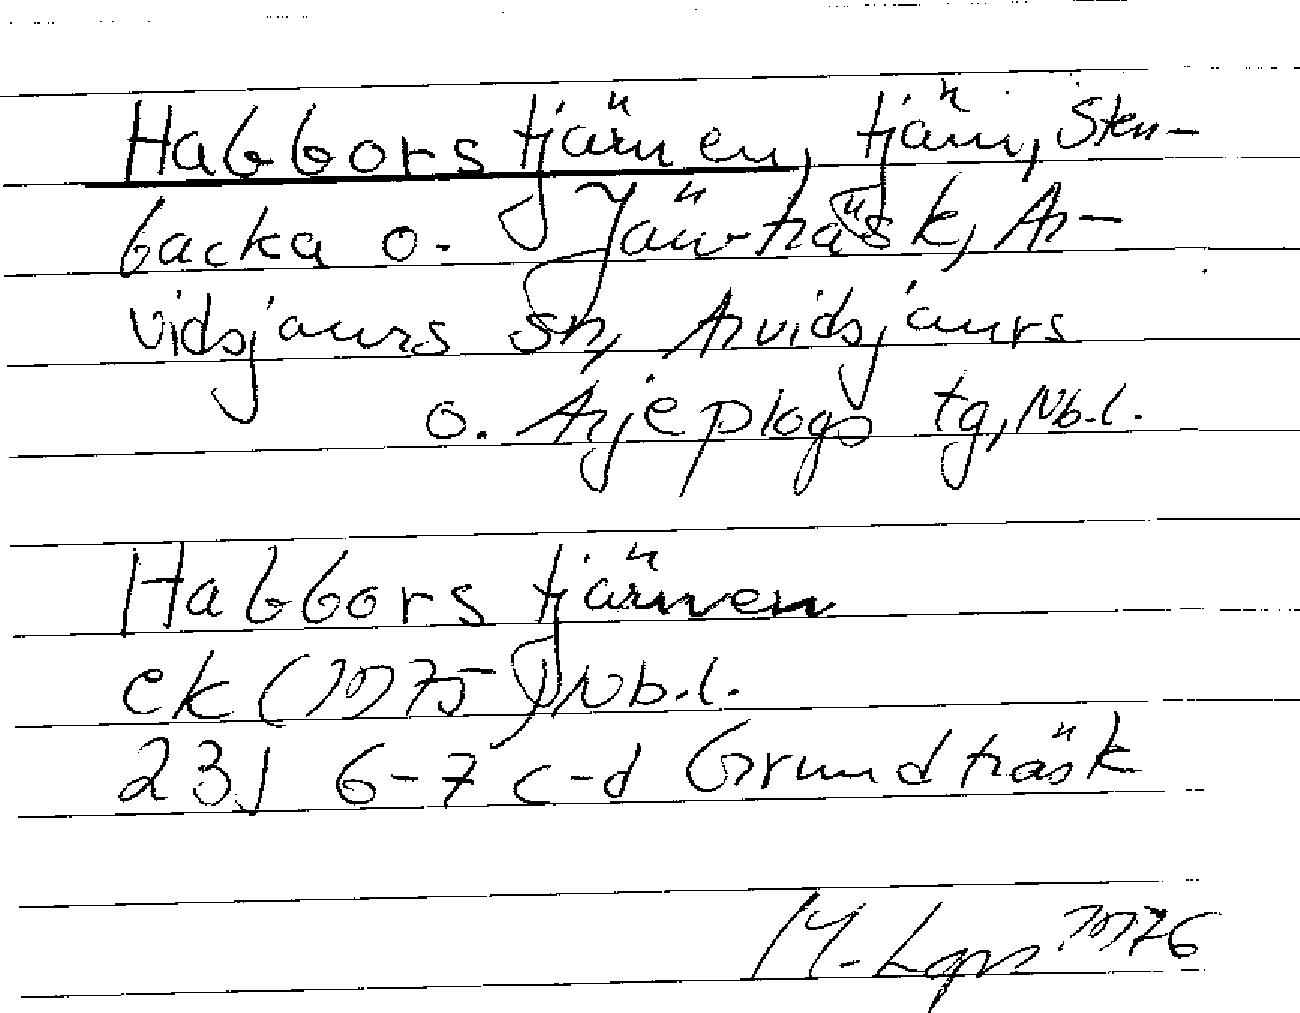 Habborstjärnen, tjärn, Sten-
backa o. Järvträsk, Ar-
vidsjaurs sn, Arvidsjaurs
o. Arjeplogs tg, Nb.l.
Habborstjärnen
ek (1975) Nb.l.
23J 6-7 c-d Grundträsk
M. Lgn 1976